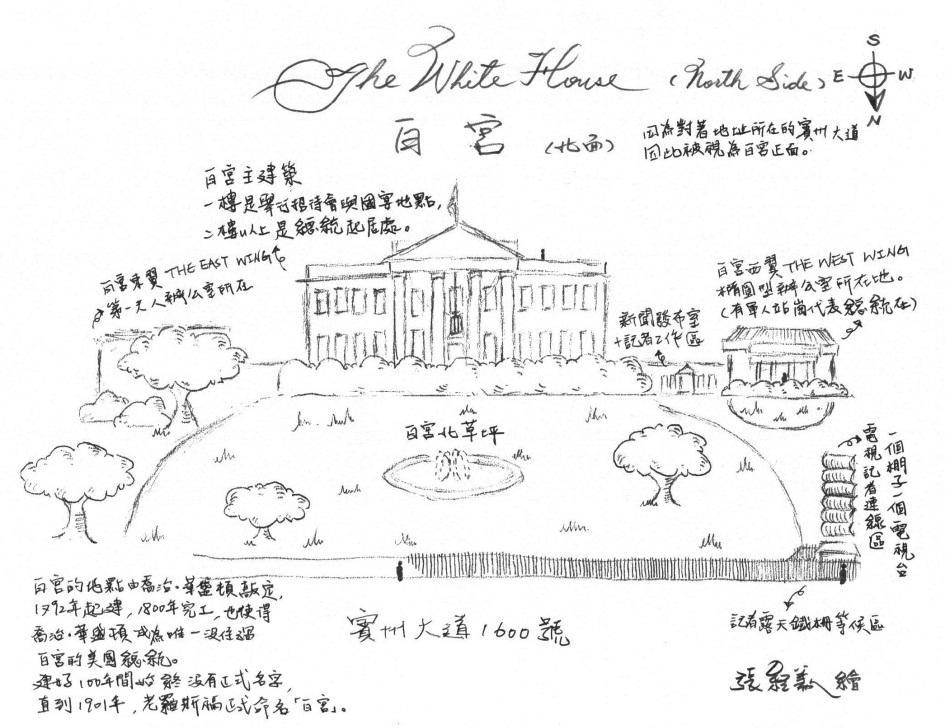 The White House (North Side)
S
E W
N
白宮 (北面)
因為對著地址所在的賓州大道
因此被視為白宮正面。
白宮主建築
一樓是舉行招待會與國宴地點,
二樓以上是總統起居處。
白宮東翼 THE EAST WING
第一夫人辦公室所在
白宮西翼 THE WEST WING
橢圓型辦公室所在地。
(有軍人站崗代表總統在)
新聞發布室
+記者工作區
白宮北草坪
一個棚子一個電視台
電視記者連線區
白宮的地點由喬治·華盛頓敲定,
1792年起建, 1800年完工, 也使得
喬治·華盛頓成為唯一沒住過
白宮的美國總統。
建好100年間始終沒有正式名字,
直到1901年, 老羅斯福正式命名「白宮」。
賓州大道1600號
記者露天鐵柵等候區
張 義 繪